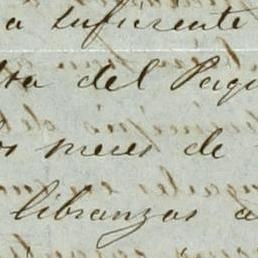 a sufisente
del Paq
meses de
libranzas a